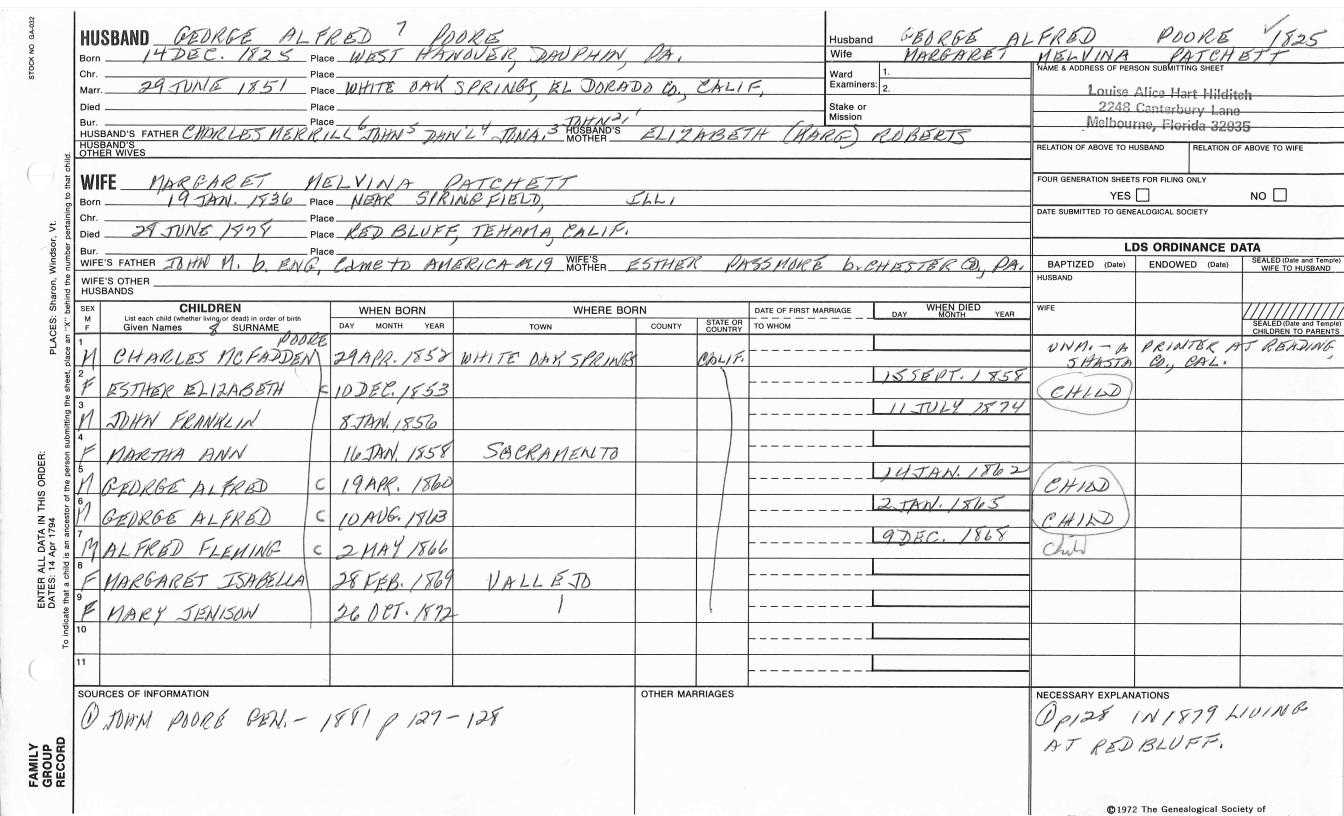 STOCK NO. GA-032
HUSBAND GEORGE ALFRED 7 POORE
Born 14 DEC. 1825 Place WEST HANOVER, DAUPHIN, PA.
Chr. Place
Marr. 29 JUNE 1851 Place WHITE OAK SPRINGS, EL DORADO CO., CALIF,
Died Place
Bur. Place
HUSBAND'S FATHER CHARLES MERRILL 6 JOHN 5 DAN'L 4 JONA. 3 JOHN 2, 1 HUSBAND'S MOTHER ELIZABETH (RARE) ROBERTS
HUSBAND'S OTHER WIVES
Husband GEORGE ALFRED POORE 1825
Wife MARGARET MELVINA PATCHETT
Ward Examiners: 1.
2.
Stake or Mission
NAME & ADDRESS OF PERSON SUBMITTING SHEET
Louise Alice Hart Hilditch
2248 Canterbury Lane
Melbourne, Florida 32935
RELATION OF ABOVE TO HUSBAND RELATION OF ABOVE TO WIFE
FOUR GENERATION SHEETS FOR FILING ONLY
YES NO
DATE SUBMITTED TO GENEALOGICAL SOCIETY
WIFE MARGARET MELVINA PATCHETT
Born 19 JAN. 1836 Place NEAR SPRINGFIELD, ILL,
Chr. Place
Died 29 JUNE 1878 Place RED BLUFF, TEHAMA, CALIF.
Bur. Place
WIFE'S FATHER JOHN M. b. ENG, Came to AMERICA 19 WIFE'S MOTHER ESTHER PASSMORE b. CHESTER CO, PA.
WIFE'S OTHER HUSBANDS
LDS ORDINANCE DATA
BAPTIZED (Date) ENDOWED (Date) SEALED (Date and Temple) WIFE TO HUSBAND
HUSBAND
WIFE
SEALED (Date and Temple) CHILDREN TO PARENTS
SEX M F CHILDREN WHEN BORN WHERE BORN DATE OF FIRST MARRIAGE WHEN DIED
List each child (whether living or dead) in order of birth
Given Names 8 SURNAME DAY MONTH YEAR TOWN COUNTY STATE OR COUNTRY TO WHOM DAY MONTH YEAR
POORE
1 M CHARLES McFADDEN 29 APR. 1852 WHITE OAK SPRINGS CALIF. UNM. - A PRINTER AT READING, SHASTA CO., CAL.
2 F ESTHER ELIZABETH C 10 DEC. 1853 15 SEPT. 1858 CHILD
3 M JOHN FRANKLIN 8 JAN. 1856 11 JULY 1874
4 F MARTHA ANN 16 JAN. 1858 SACRAMENTO
5 M GEORGE ALFRED C 19 APR. 1860 14 JAN. 1862 CHILD
6 M GEORGE ALFRED C 10 AUG. 1863 2 JAN. 1865 CHILD
7 M ALFRED FLEMING C 2 MAY 1866 9 DEC. 1868 Child
8 F MARGARET ISABELLA 28 FEB. 1869 VALLEJO
9 F MARY JENISON 26 OCT. 1872
10
11
SOURCES OF INFORMATION
① JOHN POORE GEN. - 1881 p 127-128
OTHER MARRIAGES
NECESSARY EXPLANATIONS
① p128 IN 1879 LIVING
AT RED BLUFF.
©1972 The Genealogical Society of
PLACES: Sharon, Windsor, Vt.
ENTER ALL DATA IN THIS ORDER:
DATES: 14 Apr 1794
To indicate that a child is an ancestor of the person submitting the sheet, place an "X" behind the number pertaining to that child.
FAMILY
GROUP
RECORD